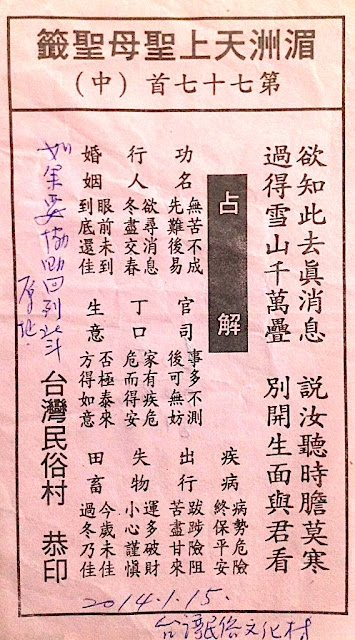 湄洲天上聖母聖籤
第七十七首（中）
欲知此去眞消息 說汝聽時膽莫寒
過得雪山千萬疊 別開生面與君看
占解
疾病
病勢危險
終保平安
功名
無苦不成
先難後易
官司
事多不測
後可無妨
出行
跋踄險阻
苦盡甘來
行人
欲尋消息
冬盡交春
丁口
家有疾危
危而得安
失物
運多破財
小心謹慎
婚姻
眼前未到
到底還佳
生意
否極泰來
方得如意
田畜
今歲未佳
過冬乃佳
台灣民俗村 恭印
如果要協助回到北斗
原地
2014.1.15.
民俗文化村